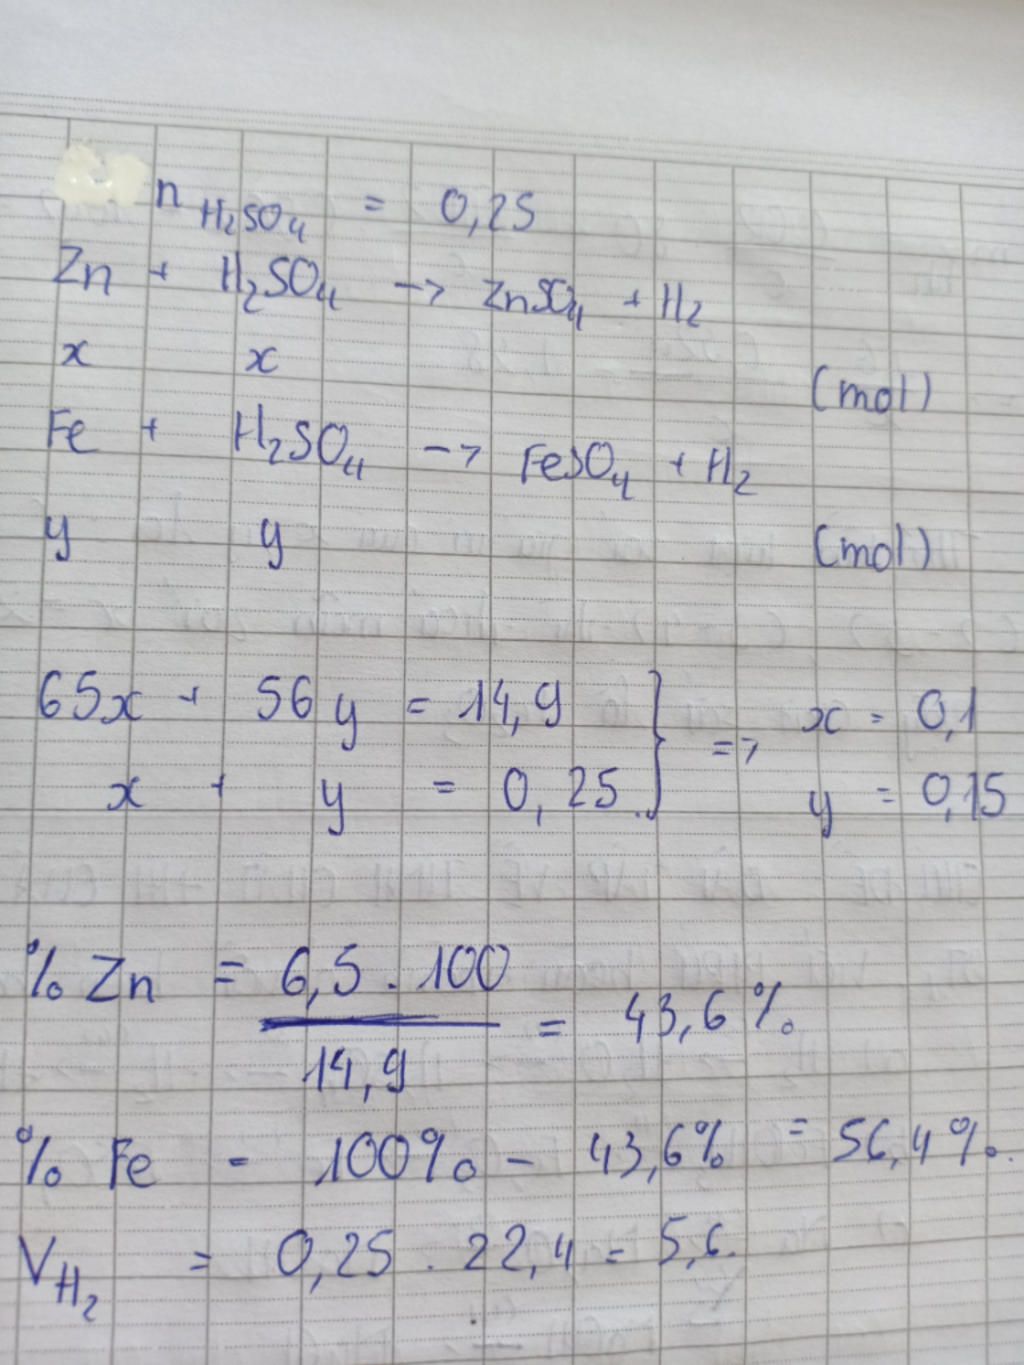 n H₂SO₄ = 0,25
Zn + H₂SO₄ → ZnSO₄ + H₂
x x (mol)
Fe + H₂SO₄ → FeSO₄ + H₂
y y (mol)
65x + 56y = 14,9 } => x = 0,1
x + y = 0,25 y = 0,15
% Zn = 6,5 . 100
14,9
= 43,6 %
% Fe = 100% - 43,6% = 56,4%.
V H₂ = 0,25 . 22,4 = 5,6.